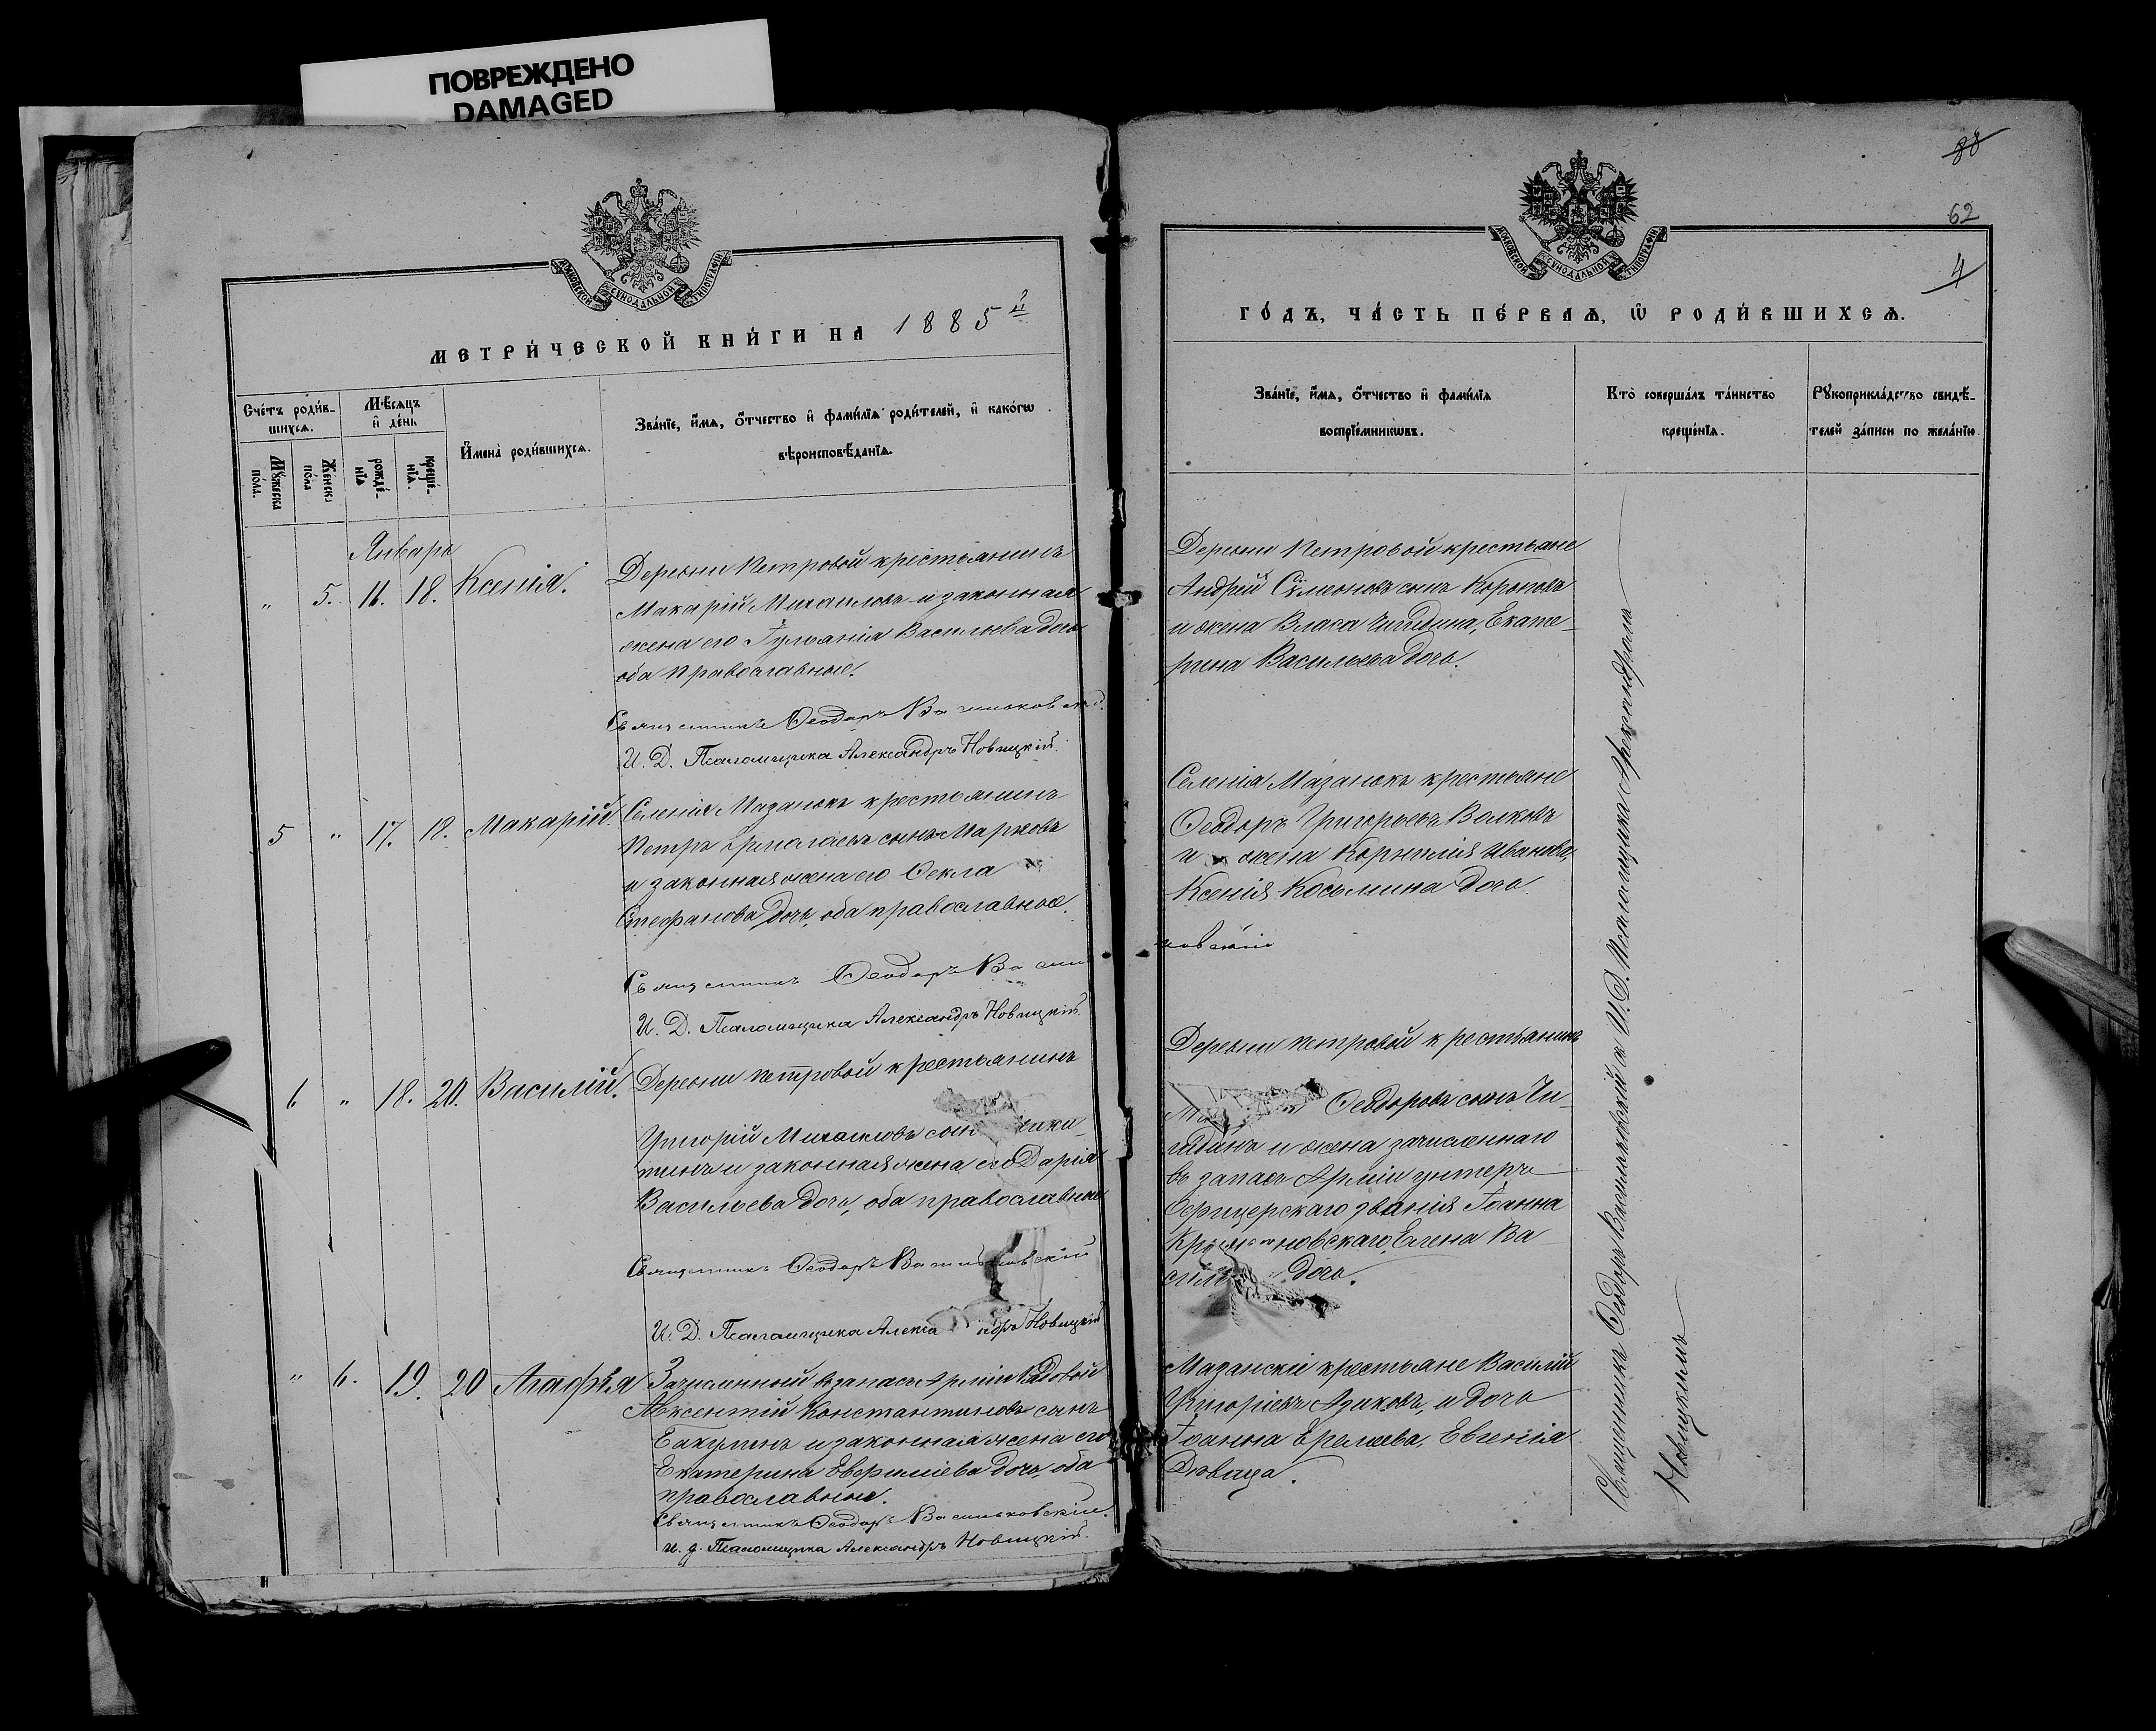 ПОВРЕЖДЕНО
DAMAGED
МОСКОВСКОЙ СѴНОДАЛЬНОЙ ТИПОГРАФІИ
МЕТРИ́ЧЕСКОЙ КНИ́ГИ НА 1885 й
Сче́тъ роди́в-
шихсѧ.
Мꙋ́жеска по́ла.
Же́нска по́ла
Мѣ́сѧцъ
и҆ де́нь
рожде́-
нїѧ
креще́-
нїѧ.
И҆мена̀ роди́вшихсѧ.
Зва́нїе, и҆́мѧ, о҆́тчество и҆ фами́лїѧ роди́телей, и҆ како́гѡ
вѣроисповѣ́данїѧ.
Январь
" 5. 16. 18. Ксенія.
Деревни Петровой крестьянинъ
Макарій Михаиловъ и законная
жена его Іуліанія Васильева дочь
оба православные.
Священникъ Ѳеодоръ Васильковскій.
И. Д. Псаломщика Александръ Новицкій.
5 " 17. 18. Макарій.
Селенія Мазанокъ крестьянинъ
Петръ сынъ Марковъ
и законная жена его Ѳекла
Стефанова дочь, оба православные.
Священникъ Ѳеодоръ Васильковскій
И. Д. Псаломщика Александръ Новицкій.
6 " 18. 20. Василій.
Деревни Петровой крестьянинъ
Григорій Михаиловъ сынъ
и законная жена его Дарія
Васильева дочь, оба православные
Священникъ Ѳеодоръ Васильковскій
И. Д. Псаломщика Александръ Новицкій
" 6. 19. 20 Агафія
Зачисленный въ запасъ Арміи Рядовой
Авксентій Константиновъ сынъ
Бакулинъ и законная жена его
Екатерина Евфиміева дочь, оба
православные.
Священникъ Ѳеодоръ Васильковскій.
и. д. Псаломщика Александръ Новицкій.
88
62
4
МОСКОВСКОЙ СѴНОДАЛЬНОЙ ТИПОГРАФІИ
ГО́ДЪ, ЧА́СТЬ ПЕ́РВАѦ, Ѡ҆ РОДИ́ВШИХСѦ.
Зва́нїе, и҆́мѧ, о҆́тчество и҆ фами́лїѧ
воспрїе́мникѡвъ.
Кто̀ соверша́лъ та́инство
креще́нїѧ.
Рꙋкоприкла́дство свидѣ́-
телей за́писи по жела́нїю.
Деревни Петровой крестьяне
Андрей Сѵмеоновъ сынъ
и жена Власа Чигидина, Екате-
рина Васильева дочь.
Селенія Мазанокъ крестьяне
Ѳеодоръ Григорьевъ Волковъ
и жена Корнилія Иванова,
Ксенія Косьмина дочь.
Деревни Петровой крестьянинъ
Ѳеодоровъ сынъ Чи-
гидинъ и жена зачисленнаго
въ запасъ Арміи унтеръ-
Офицерскаго званія Іоанна
Елена Ва
дочь.
Мазанскіе крестьяне Василій
Григоріевъ Азиковъ, и дочь
Іоанна Еремеева, Евгенія
Дѣвица.
Священникъ Ѳеодоръ Васильковскій съ И. Д. Псаломщика Александромъ
Новицкимъ